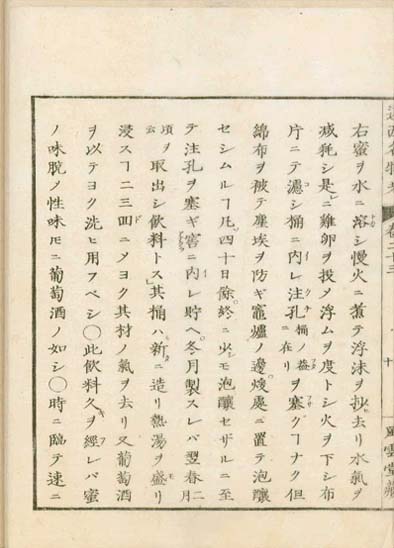 右蜜ヲ水ニ溶シ慢火ニ煮テ浮沫ヲ抄去リ水氣ヲ
減耗シ是ニ雞卵ヲ投メ浮ムヲ度トシ火ヲ下シ布
片ニテ濾シ桶ニ内レ注孔桶ノ蓋ニ在リヲ塞グヿナク但
綿布ヲ被テ塵埃ヲ防ギ竈爐ノ邊煖處ニ置テ泡釀
セシムルヿ凡四十日餘終ニ少モ泡釀セザルニ至
テ注孔ヲ塞ギ窖ニ内レ貯ヘ冬月製スレバ翌春二月
頃ヲ取出シ飲料トス云其桶ハ新ニ造リ熱湯ヲ盛リ
浸スヿ二三回ニメヨク其材ノ氣ヲ去リ又葡萄酒
ヲ以テヨク洗ヒ用フベシ○此飲料久ヲ經レバ蜜
ノ味脱ノ性味ニ葡萄酒ノ如シ○時ニ臨テ速ニ
卷二十三
風雲堂藏